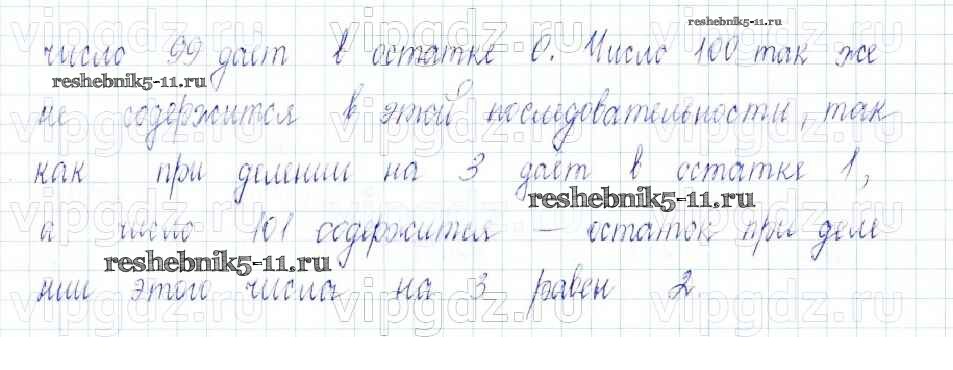 reshebnik5-11.ru
число 99 дает в остатке 0. Число 100 так же
reshebnik5-11.ru
не содержится в этой последовательности, так
как при делении на 3 дает в остатке 1,
reshebnik5-11.ru
а число 101 содержится — остаток при деле
reshebnik5-11.ru
нии этого числа на 3 равен 2.
vipgdz.com